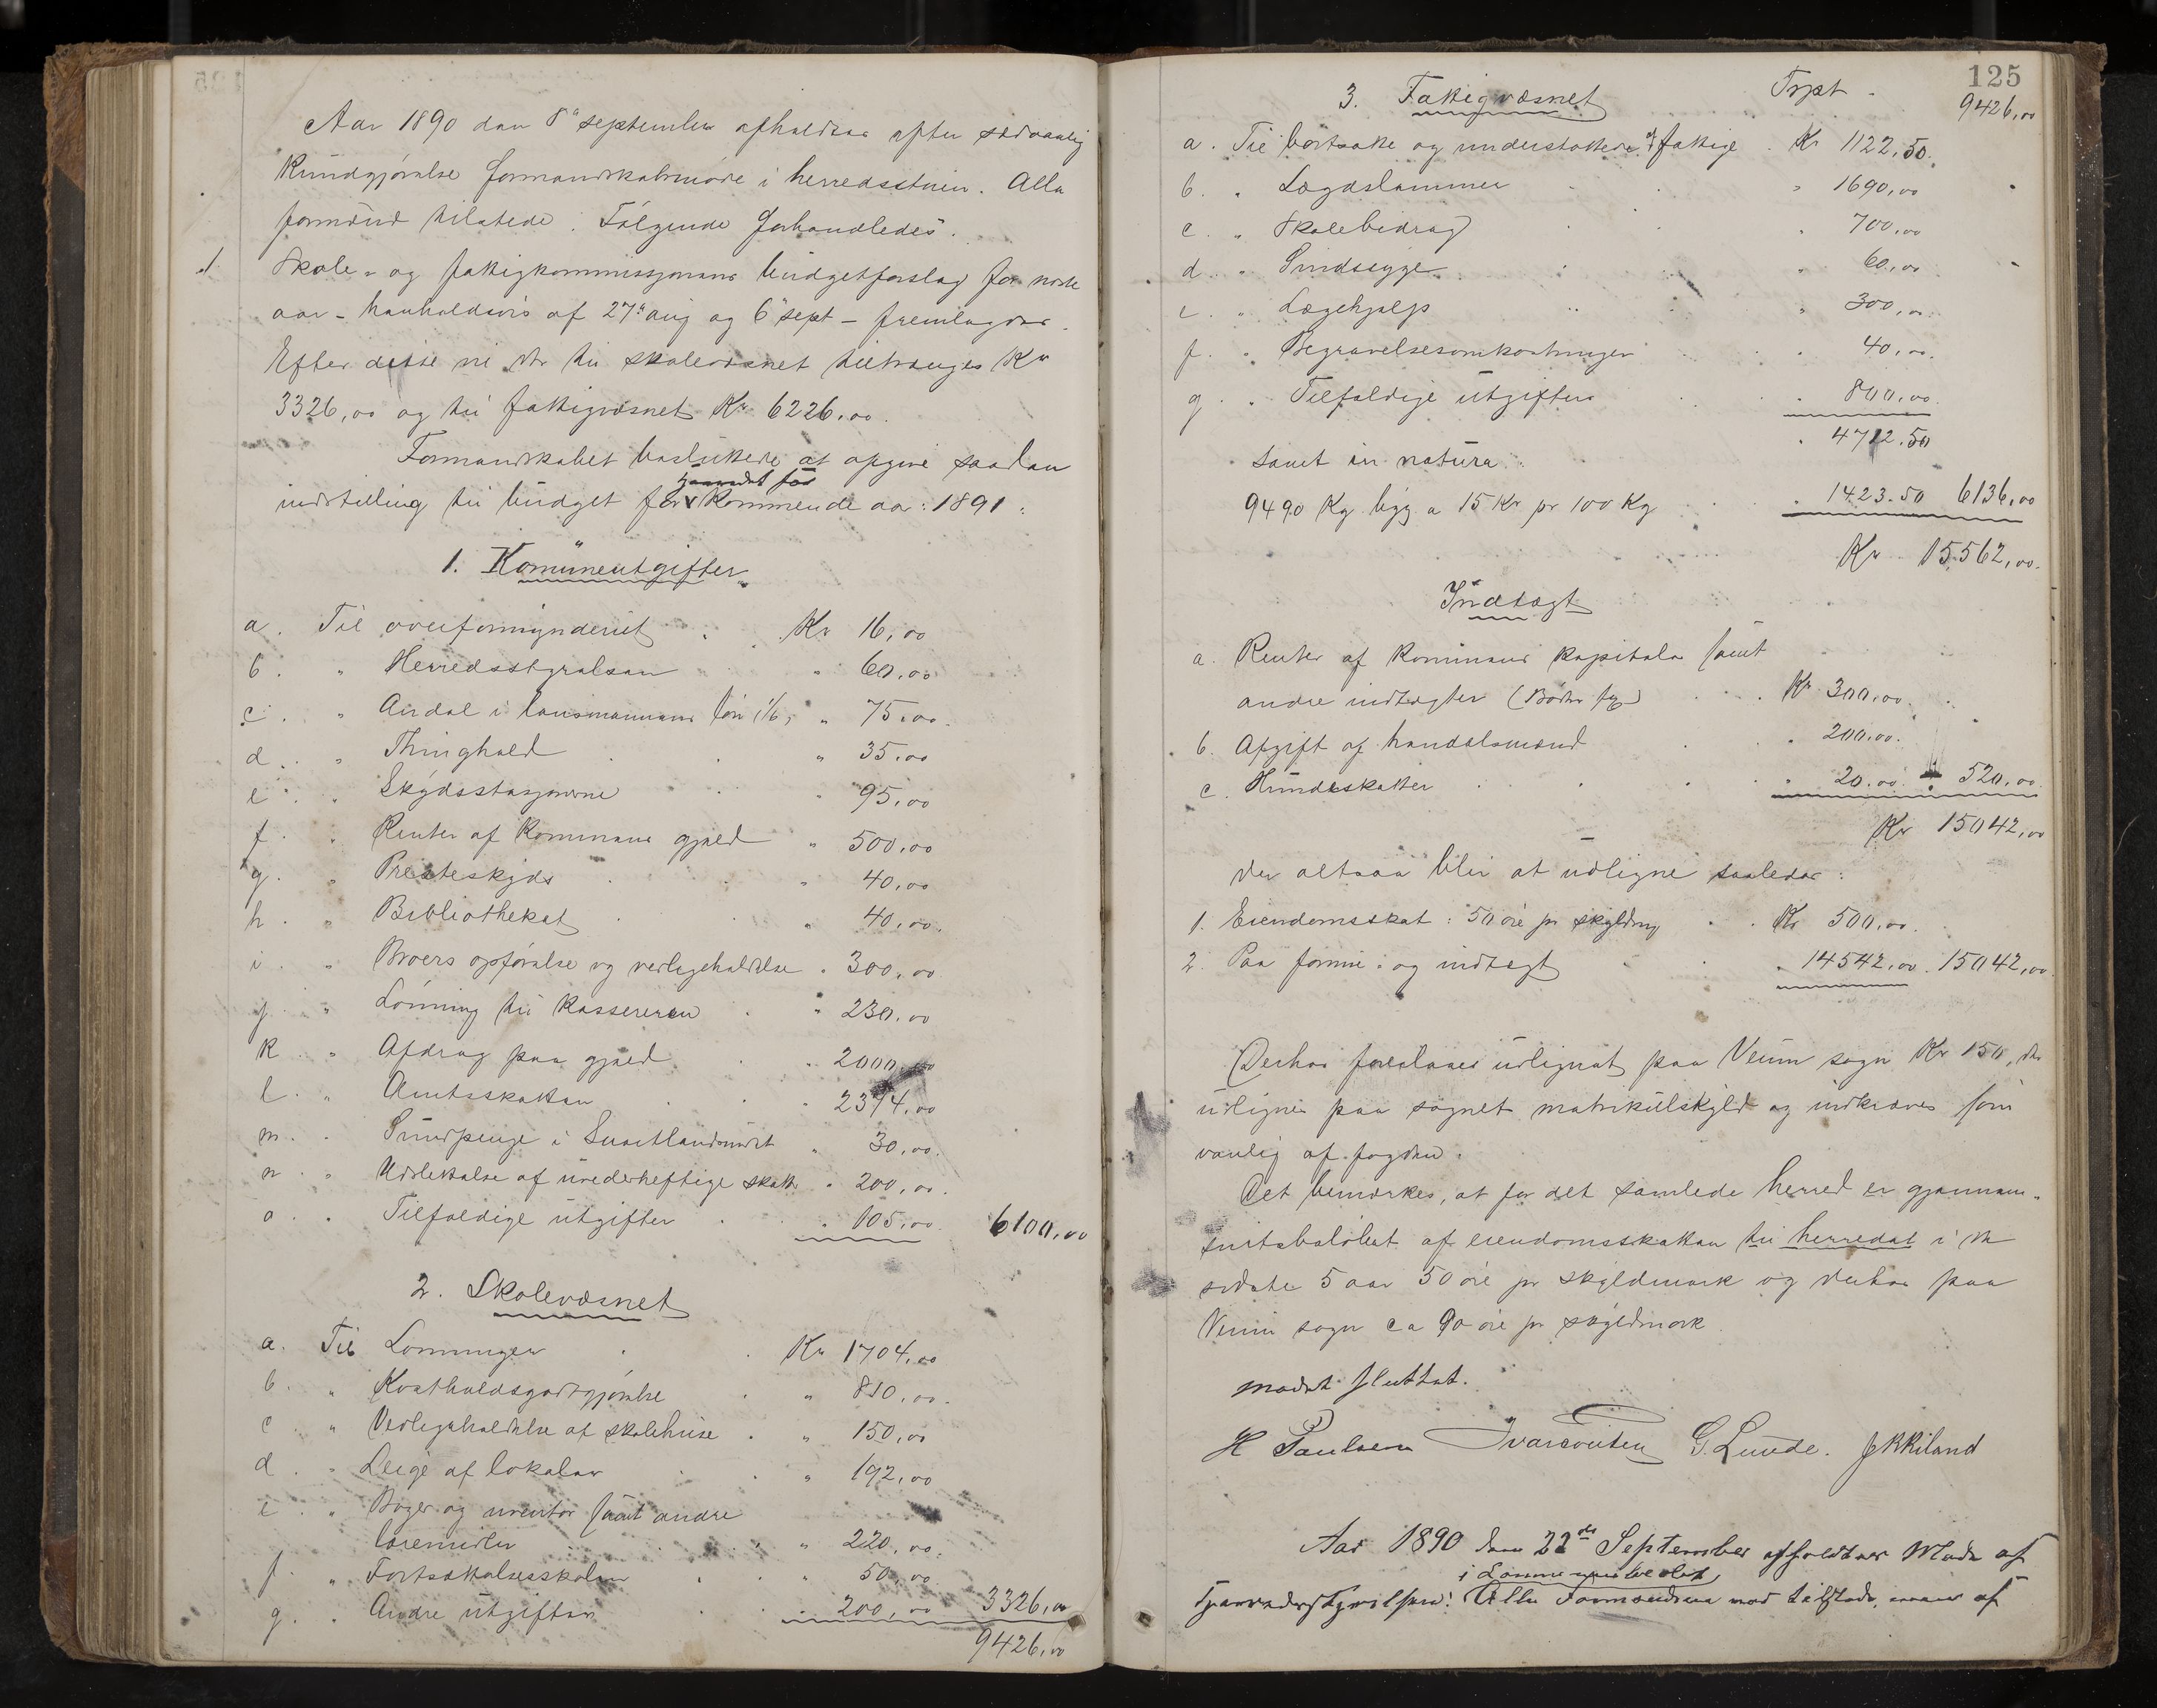 Aar 1890 den 8" september afholdtes efter sedvanlig
kundgjørelse formandskabsmøde i herredsstuen. Alle
formænd tilstede. Følgende forhandledes:
1. Skole- og fattigkommissjonens budgetforslag for næste
aar - henholdsvis af 27" aug og 6" sept - fremlagdes.
Efter disse vil der til skolevæsnet tiltrænges Kr
3326,00 og til fattigvæsnet Kr 6226,00.
Formandskabet besluttede at opgive saadan
indstilling til budget for kommende aar: 1891:
1. Komüneutgifter
a. Til overformynderiet Kr 16,00
b. " Herredsstyrelsen " 60,00
c. " Andel i lensmannens løn 1/6, " 75,00
d. " Thinghold " 35,00
e. " Skydsstasjonerne " 95,00
f. " Renter af kommunens gjæld " 500,00
g. " Presteskyds " 40,00
h. " Bibliotheket " 40,00
i. " Broers opførelse og vedligeholdelse " 300,00
j. " Lønning til kassereren " 230,00
k. " Afdrag paa gjæld " 2000,00
l. " Amtsskatten " 2374,00
m. " 30,00
n. " Udslettelse af uvederheftige skatter " 200,00
o. " Tilfeldige utgifter " 105,00 6100,00
2. Skolevæsnet
a. Til Lønninger Kr 1704,00
b. " Kostholdsgodtgjørelse " 810,00
c. " Vedligeholdelse af skolehuse " 150,00
d. " Leige af lokaler " 192,00
e. " Bøger og inventar samt andre
læremidler " 220,00
f. " Fortsættelsesskolen " 50,00
g. " Andre utgifter " 200,00 3326,00
9426,00
125
3. Fattigvæsnet Trpt. 9426,00
a. Til bortsatte og understøttede fattige Kr 1122,50
b. " Lægdslemmer " 1690,00
c. " Skolebidrag " 700,00
d. " Sindssyge " 60,00
e. " Lægehjelp " 300,00
f. " Begravelsesomkostninger " 40,00
g. " Tilfeldige utgifter " 800,00
" 4712,50
samt in natura:
9490 Kg byg a 15 Kr pr 100 Kg " 1423.50 6136,00
Kr 15562,00
Indtægt
a. Renter af kommunens kapitaler samt
andre indtægter (Bøder fg) Kr 300,00
b. Afgift af handelsmænd " 200,00
c. Hundeskatter " 20,00 520,00
Kr 15042,00
der altsaa blir at udligne saaledes:
1. Eiendomsskat: 50 øre pr skyldmrg Kr 500,00
2. Paa formue- og indtægt " 14542,00 15042,00
Derhos foreslaaes udlignet paa Veum sogn Kr 150, der
udlignes paa sognets matrikulskyld og indkræves som
vanlig af fogden.
Det bemærkes, at for det samlede herred er gjennem-
snitsbeløbet af eiendomsskatten til herredet i de
sidste 5 aar 50 øre pr skyldmark og derhos paa
Veum sogn ca 90 øre pr skyldmark
mødet sluttet.
H Paulsen G. Lunde. JKKiland
Aar 1890 den 22de September afholdtes Møde af
Alle Formændene var tilstede, af